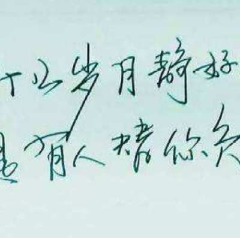 什么岁月静好
是有人替你负